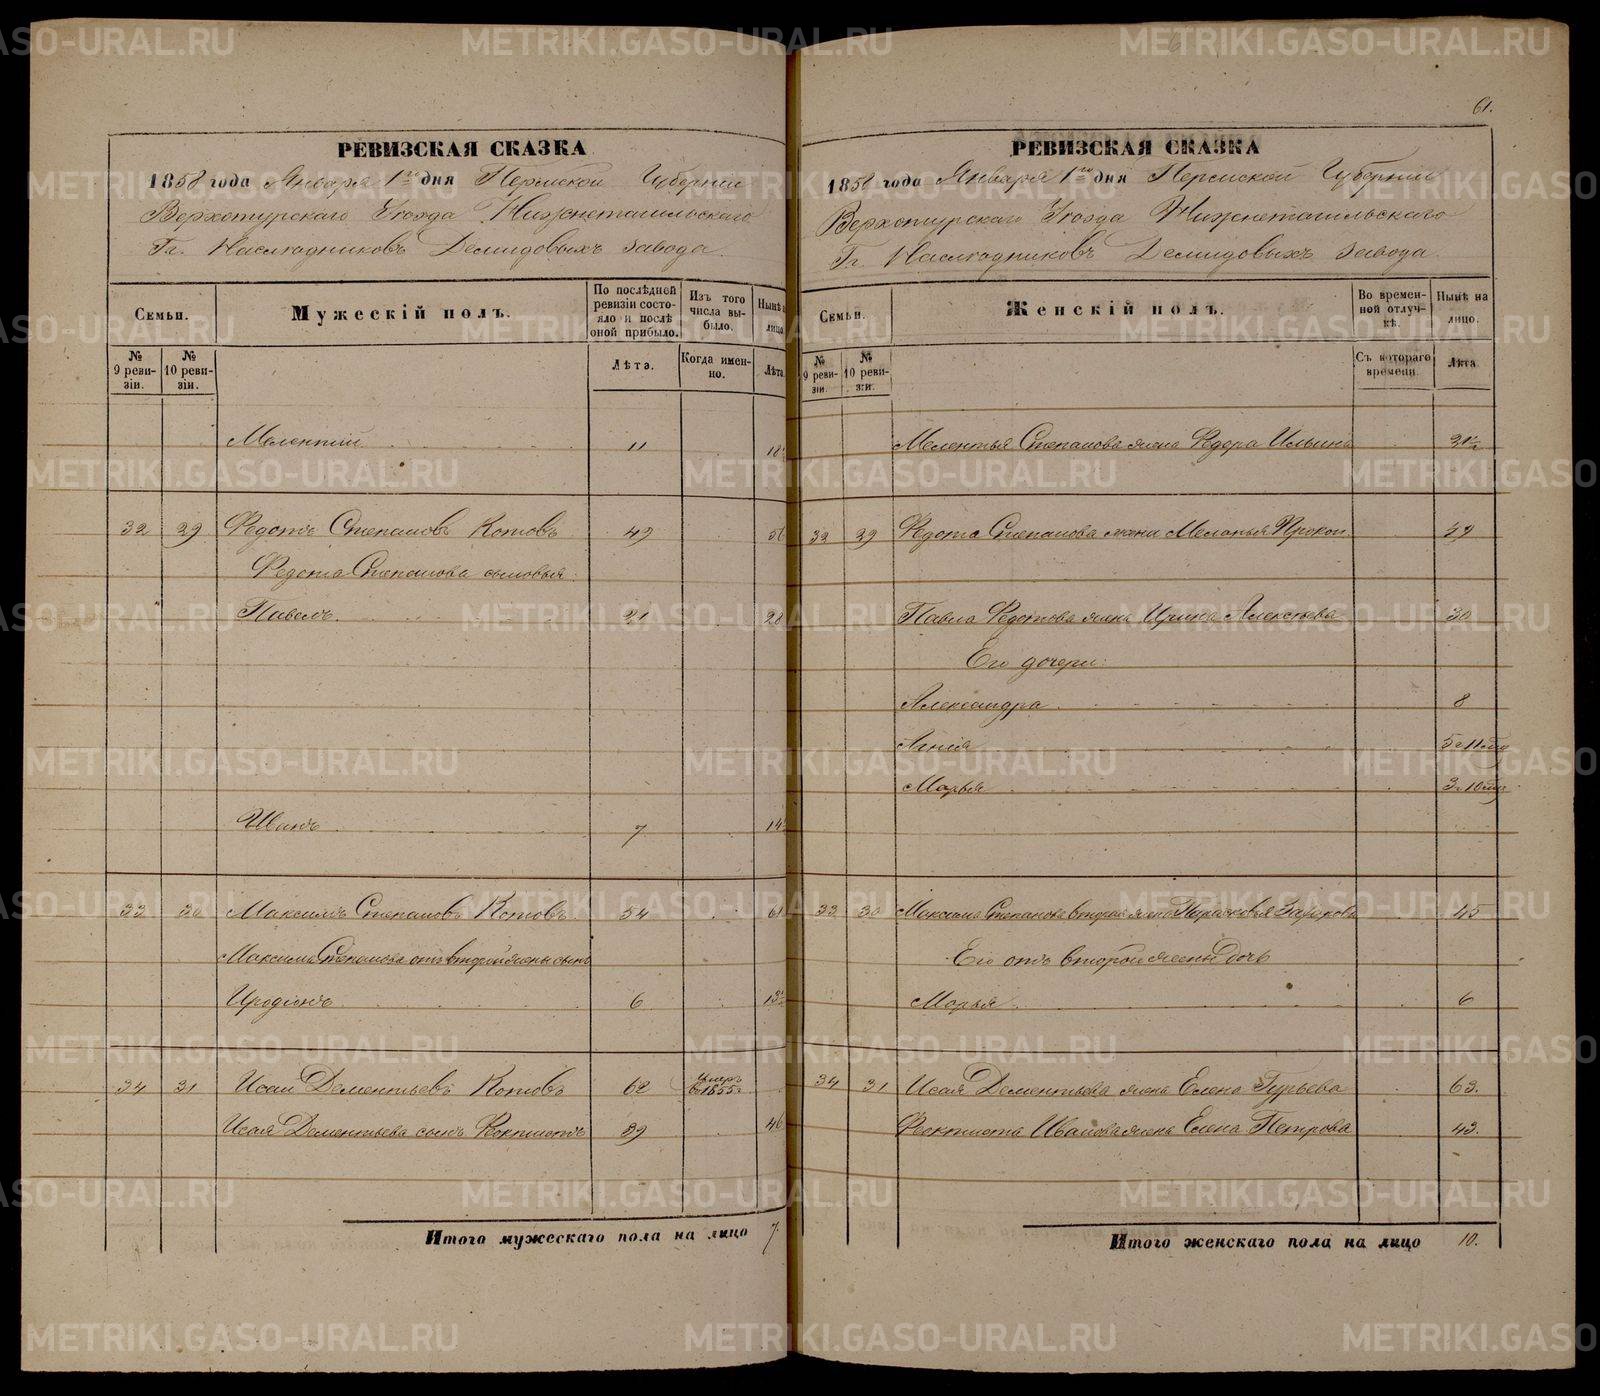 61.
РЕВИЗСКАЯ СКАЗКА
1858 года Января 1го дня Пермской Губернии
Верхотурскаго Уезда Нижнетагильскаго
Гг. Наследниковъ Демидовыхъ завода.
Семьи.
Мужескій полъ.
По послѣдней ревизіи состояло и послѣ оной прибыло.
Изъ того числа выбыло.
Нынѣ на лицо.
№ 9 ревизіи.
№ 10 ревизіи.
Лѣта.
Когда именно.
Лѣта.
Мелентій 11 18
32 29 Федотъ Степановъ Котовъ 49 56
Федота Степанова сыновья:
Павелъ 21 28
Иванъ 7 14
33 30 Максимъ Степановъ Котовъ 54 61
Максима Степанова отъ второй жены сынъ
Иродіонъ 6 13
34 31 Исаи Дементьевъ Котовъ 62 умръ въ 1855 г.
Исая Дементьева сынъ Фектистъ 39 46
Итого мужескаго пола на лицо 7.
РЕВИЗСКАЯ СКАЗКА
1858 года Января 1го дня Пермской Губерніи
Верхотурскаго Уезда Нижнетагильскаго
Гг. Наследниковъ Демидовыхъ завода.
Семьи.
Женскій полъ.
Во временной отлучкѣ.
Нынѣ на лицо.
№ 9 ревизіи.
№ 10 ревизіи.
Съ котораго времени.
Лѣта
Мелентья Степанова жена Федора Ильина
32 29 Федота Степанова жена Меланья Прокоп 49
Павла Федотова жена Ирина Алексеева 30
Его дочери:
Александра 8
Агнія 5 г 11 мц
Марья 3 г 10 мц
33 30 Максима Степанова вторая жена Парасковья Захарова 45
Его отъ второй жены дочь
Марья 6
34 31 Исая Дементьева жена Елена Гурьева 63.
Фектиста Иванова жена Елена Петрова 43.
Итого женскаго пола на лицо 10.
METRIKI.GASO-URAL.RU